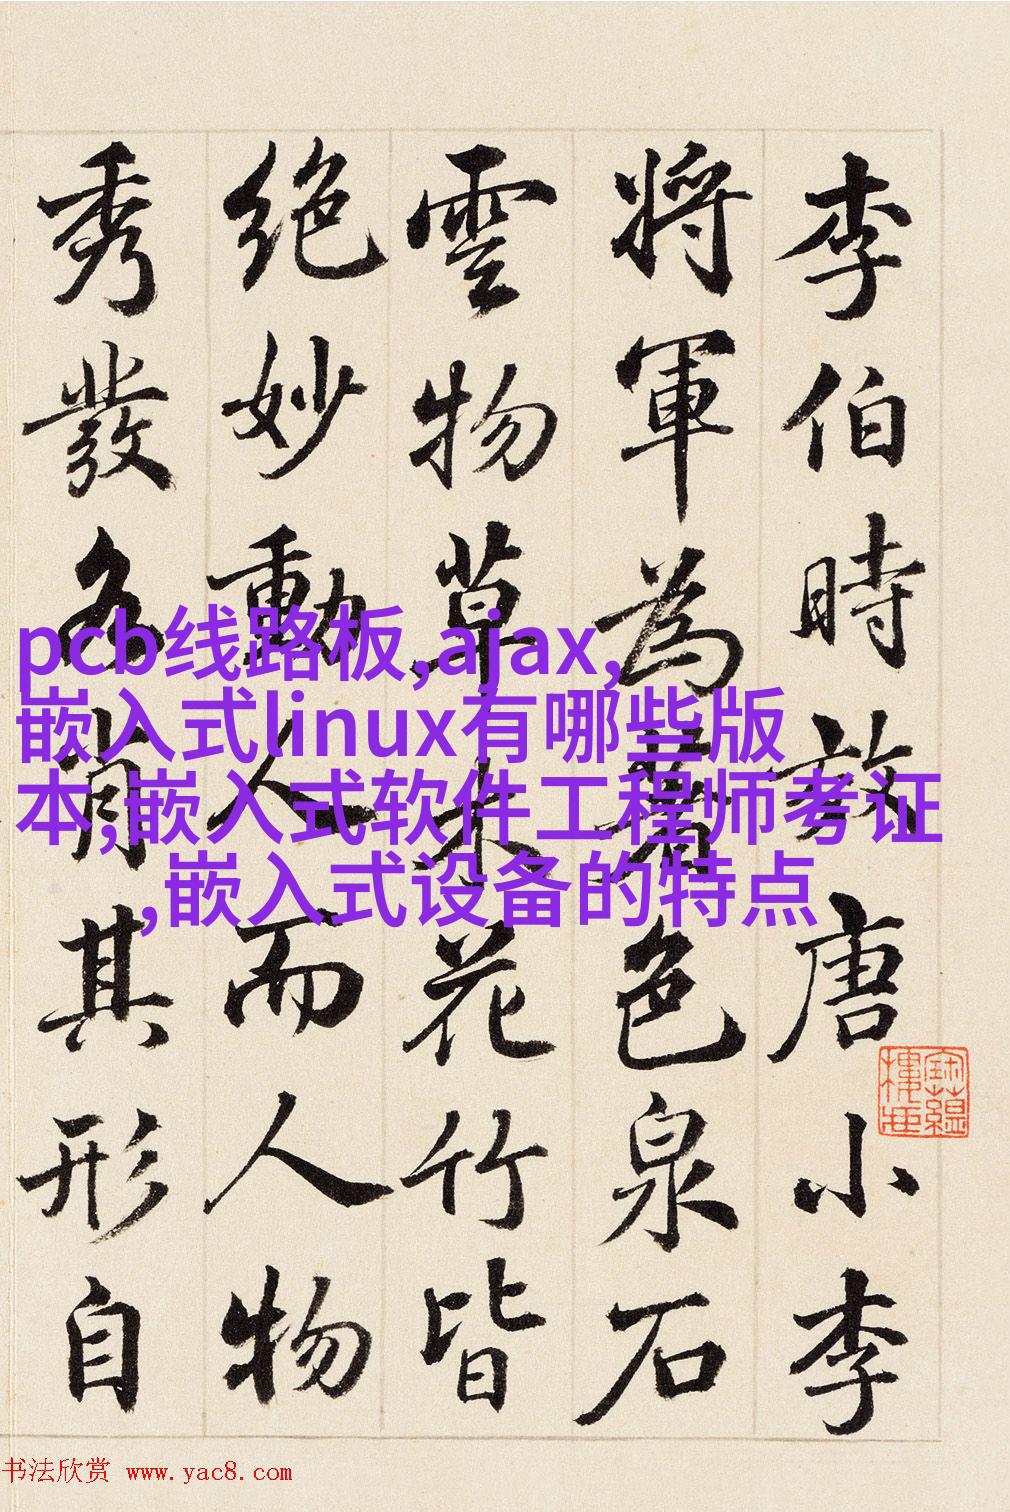 李伯時放唐小李
將軍為著色泉石
雲物草木花竹皆
絕妙動人而人物
秀發各肖其形自
pcb线路板,ajax,
嵌入式linux有哪些版
本,嵌入式软件工程师考证
,嵌入式设备的特点
寶蘊樓
书法欣赏 www.yac8.com